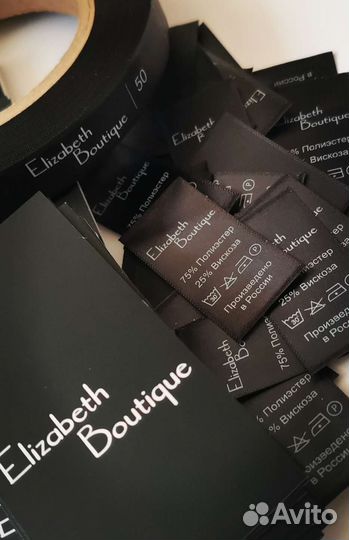 Elizabeth
Boutique
50
Elizabeth
в России
Elizabeth
Elizabeth
Boutique
75% Полиэстер
25% Вискоза
Произведено
в России
Elizabeth
Boutique
75% Полиэстер
25% Вискоза
Произведено
в России
Elizabeth
Boutique
75% Полиэстер
% Полиэстер
% Вискоза
Elizabeth
Boutique
E
Avito